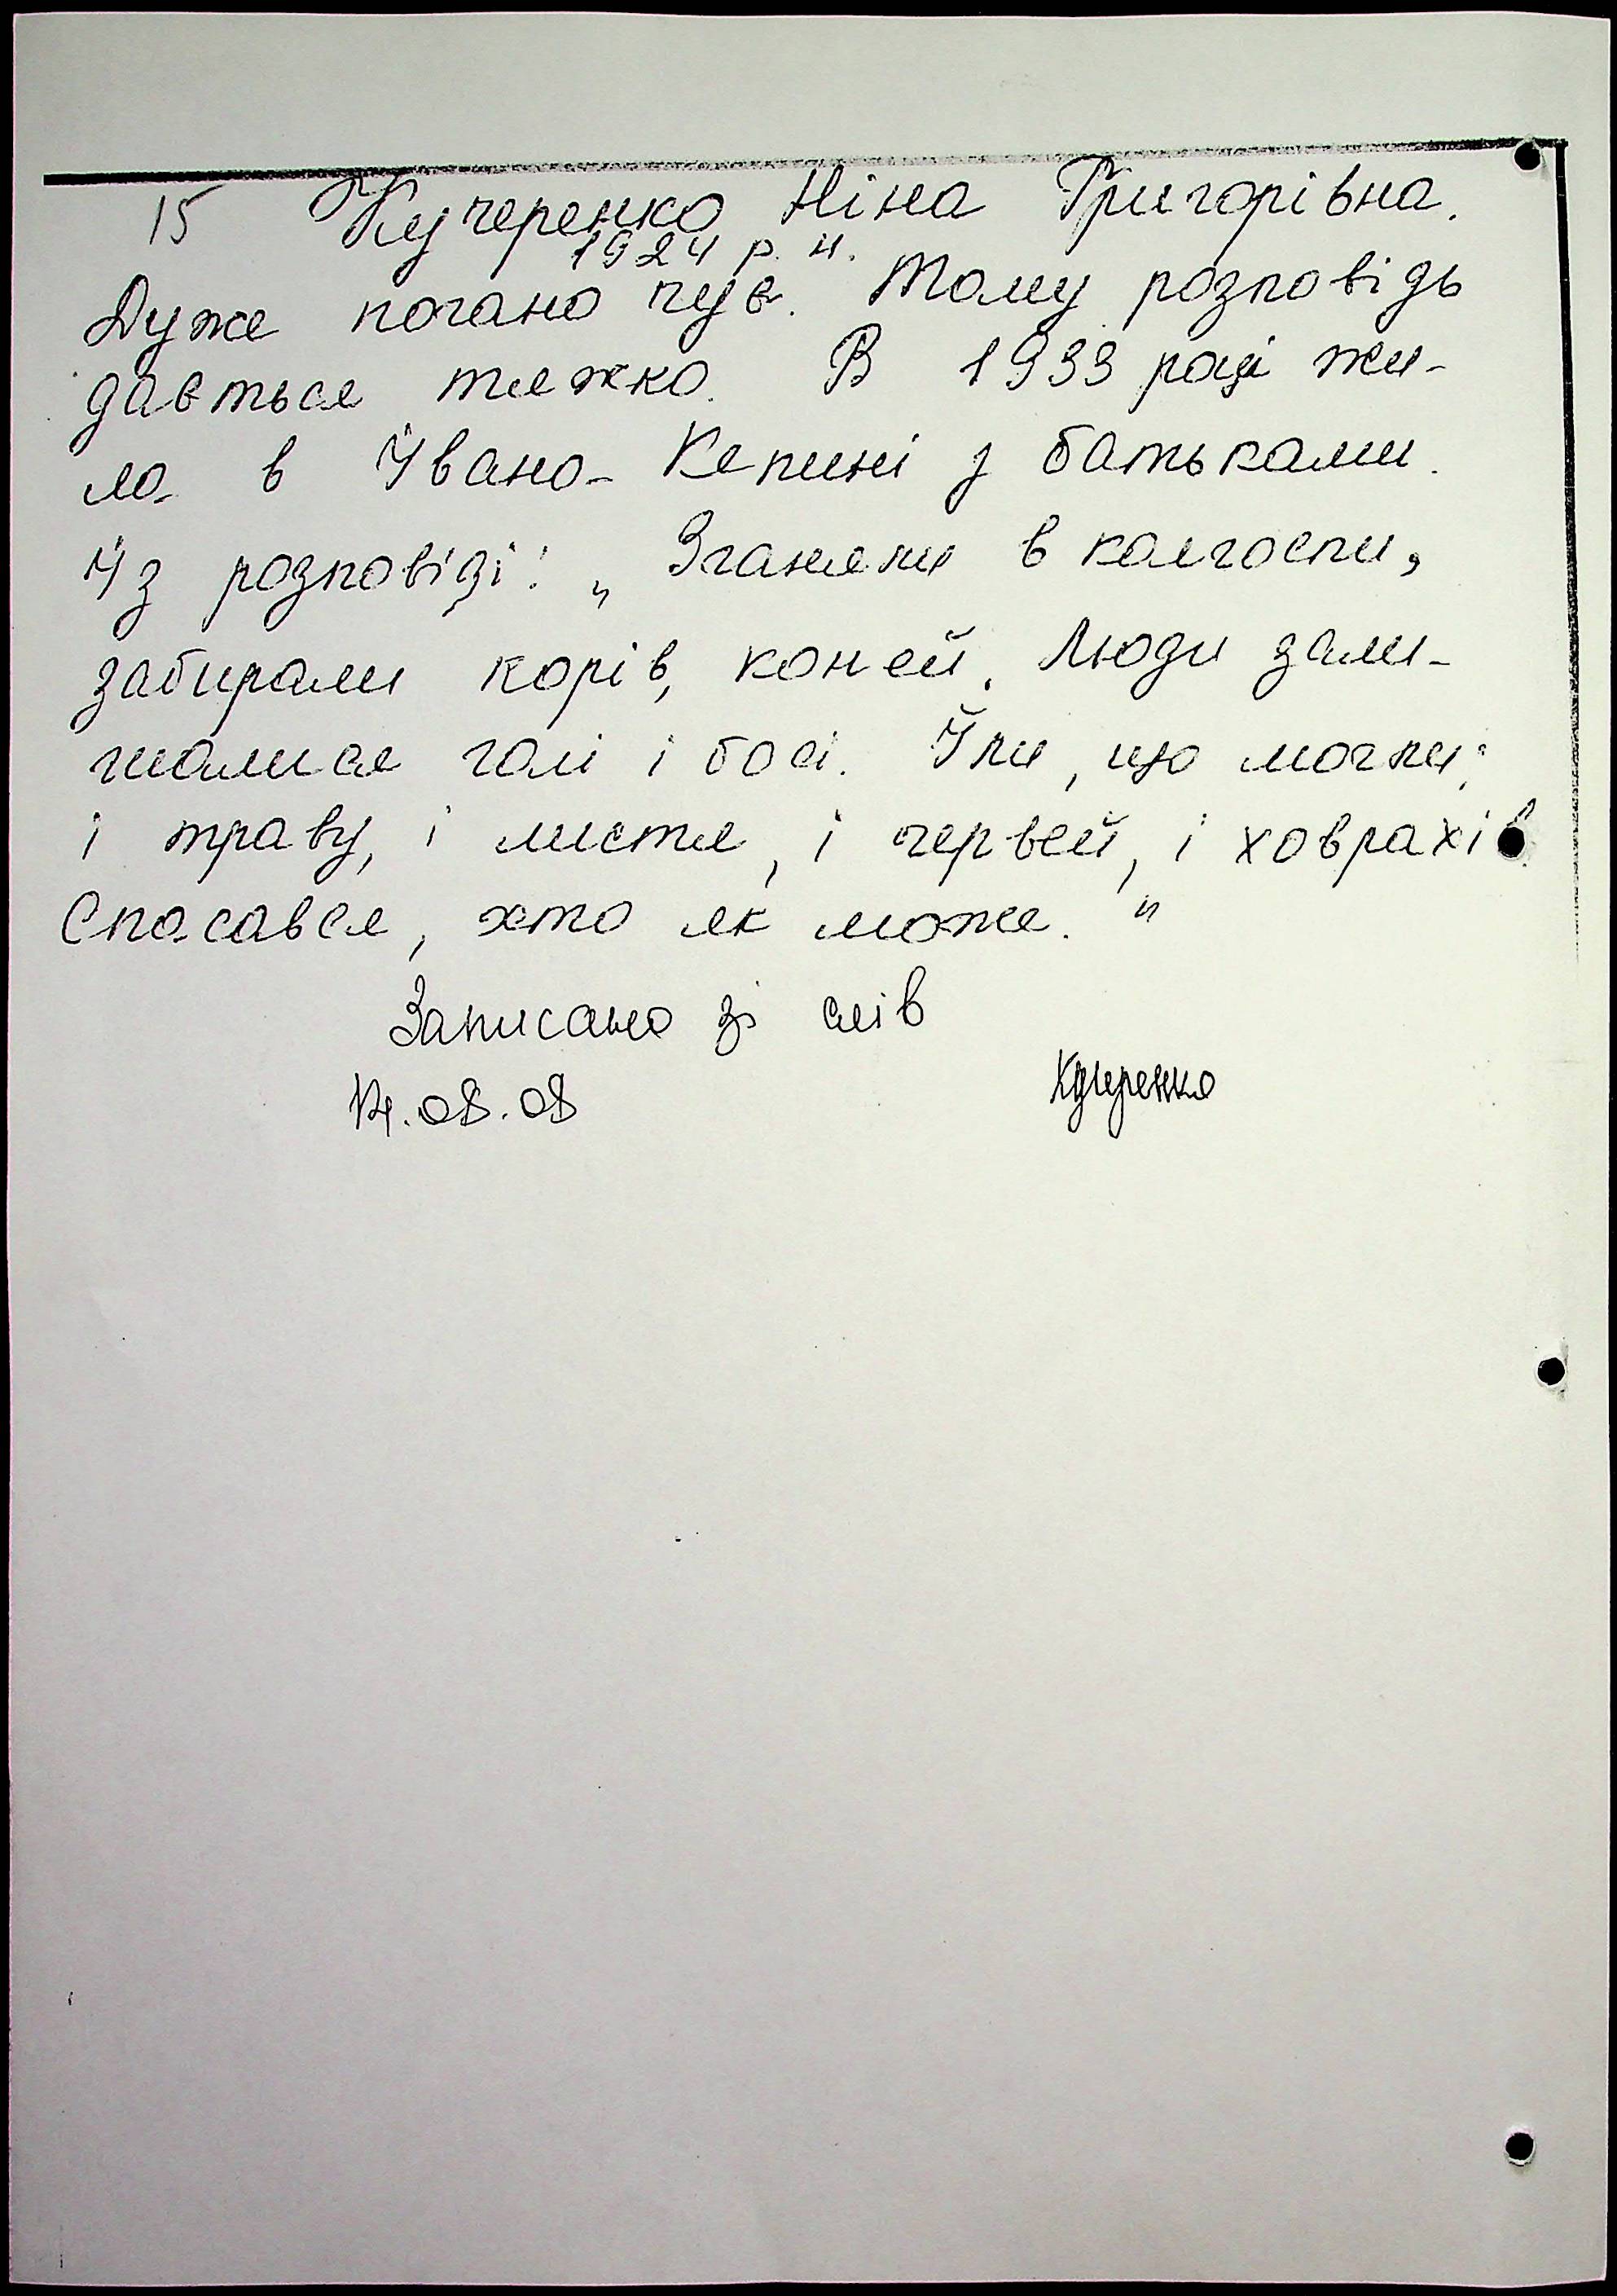 15 Кучеренко Ніна Григорівна.
1924 р. н.
Дуже погано чує. Тому розповідь
дається тяжко. В 1933 році жи-
ла в Івано-Кепині з батьками.
Із розповіді: „Зганяли в колгоспи,
забирали корів, коней. Люди зали-
шалися голі і босі. Їли, що могли:
і траву, і листя, і червей, і ховрахів.
Спасався, хто як може."
Записано зі слів
14.08.08 Кучеренко